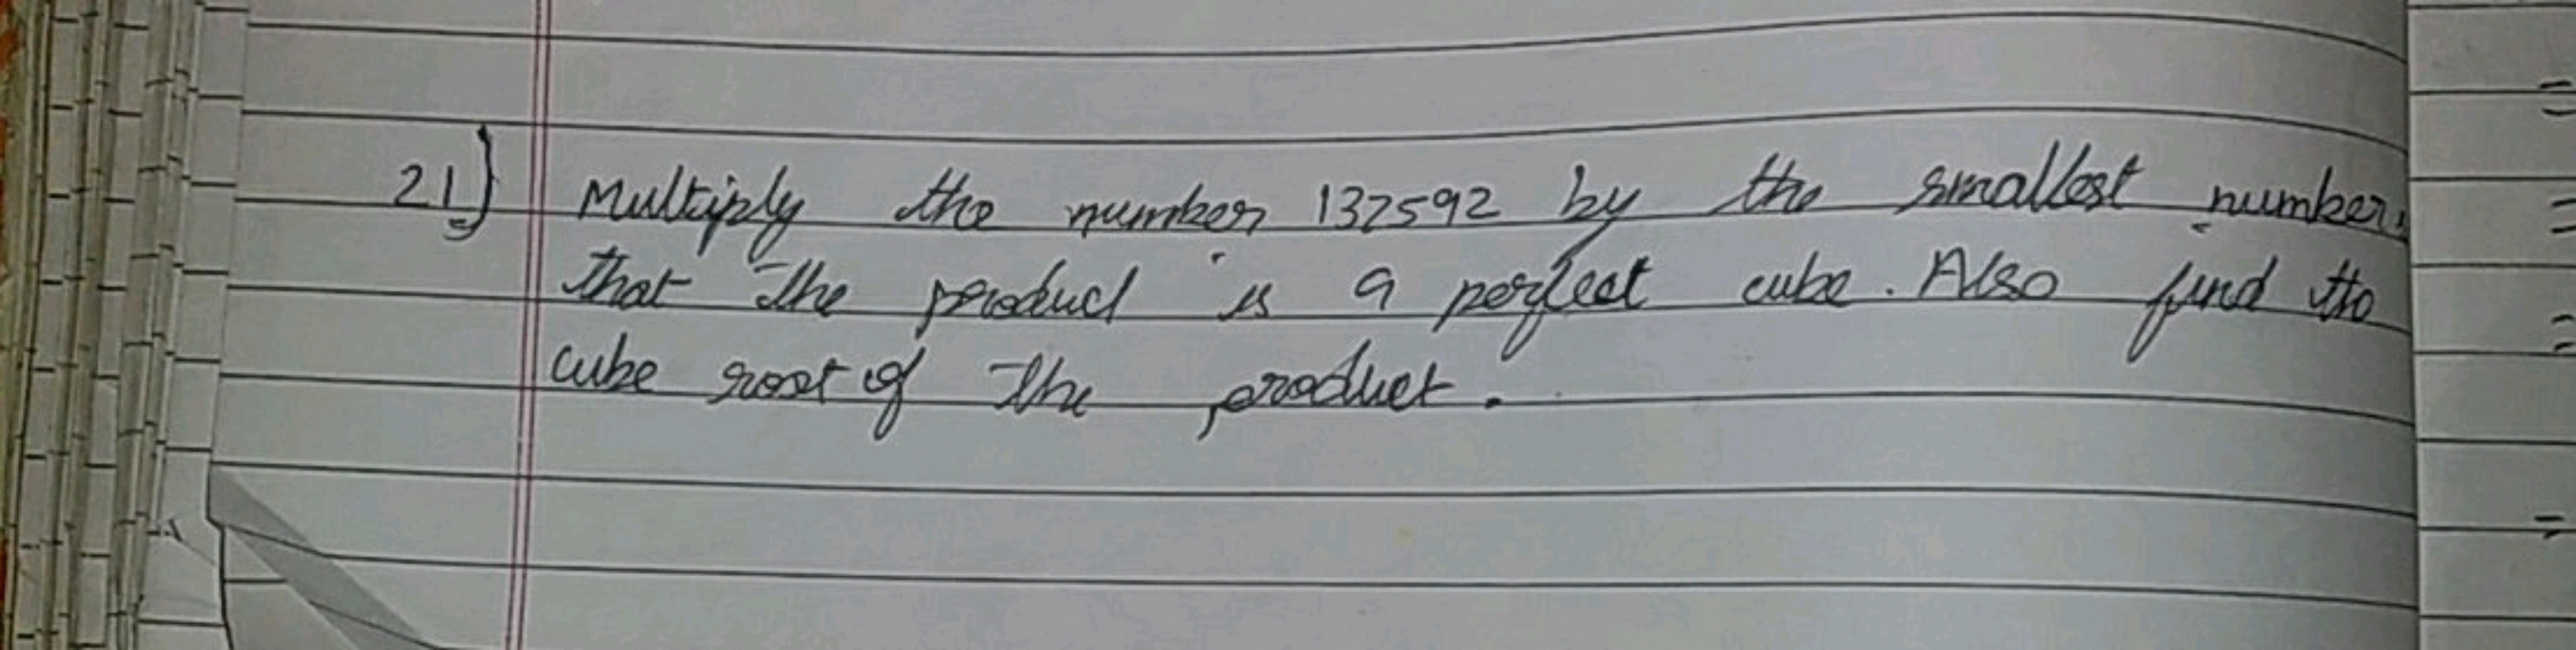 21) Multiply the number 137592 by the smallest number,
that the product is a perfect cube. Also find the
cube root of the product.